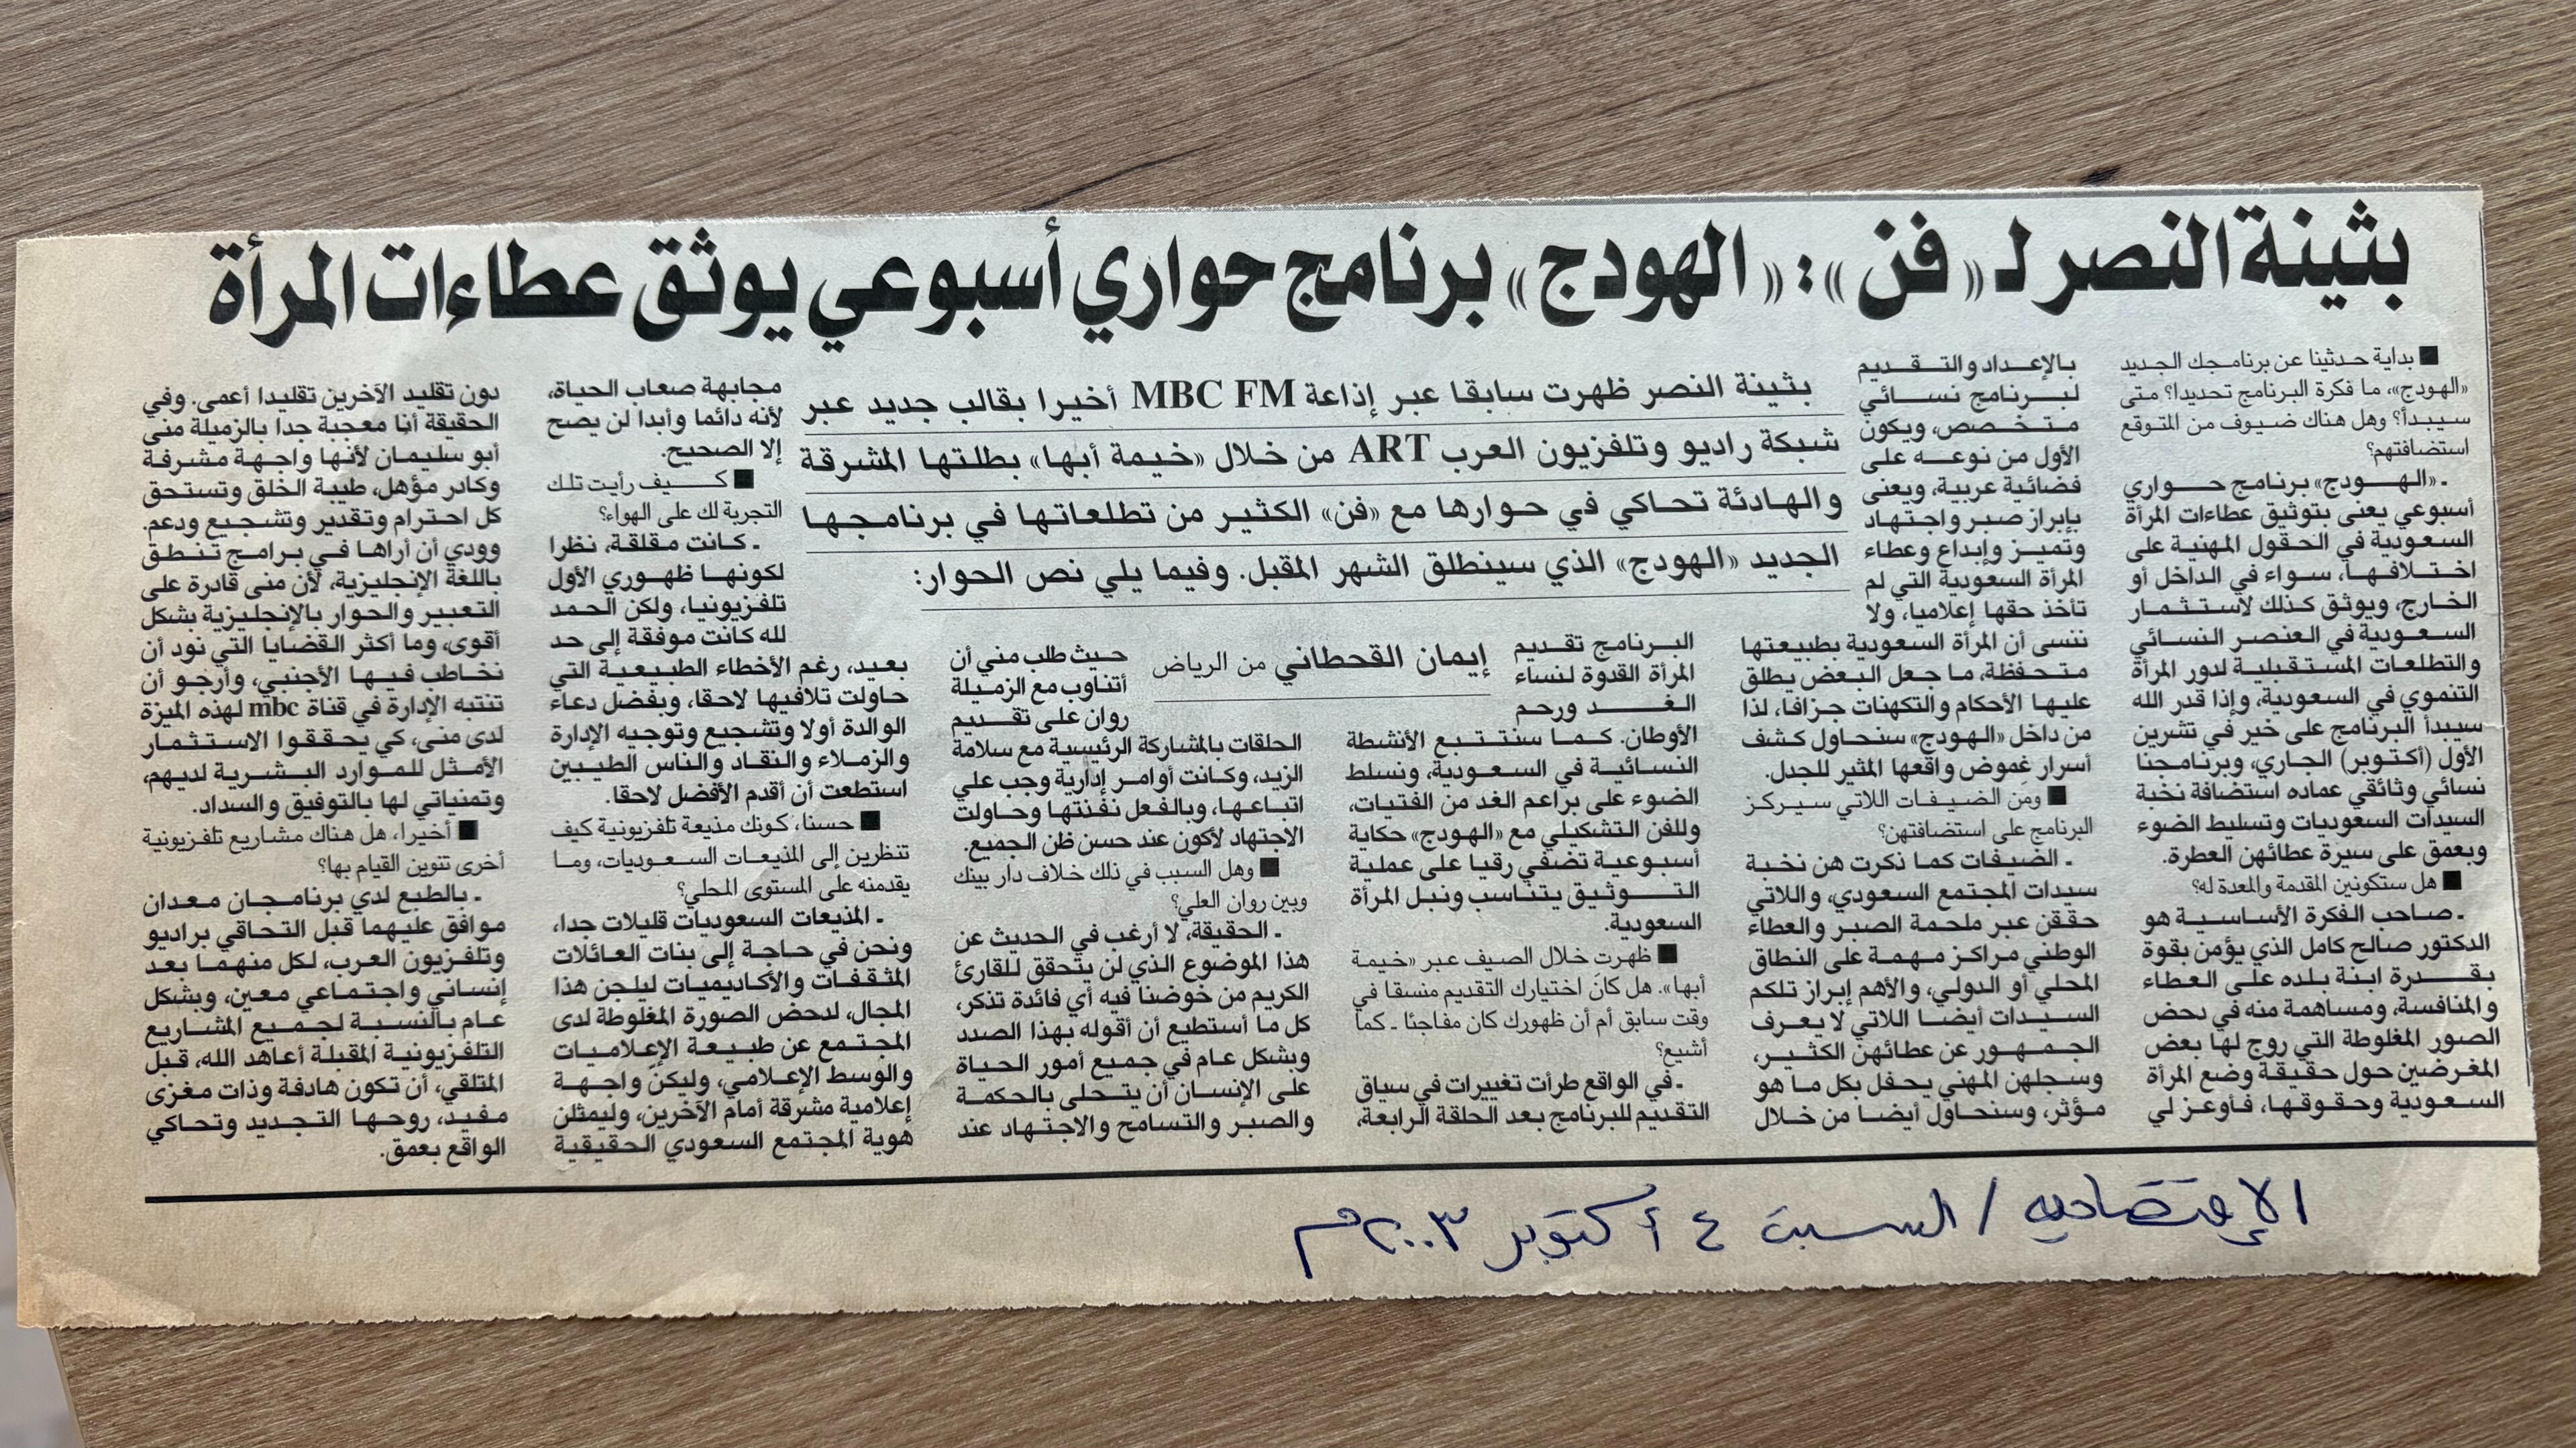 بثينة النصر لـ «فن»: «الهودج» برنامج حواري أسبوعي يوثق عطاءات المرأة
بثينة النصر ظهرت سابقا عبر إذاعة MBC FM أخيرا بقالب جديد عبر
شبكة راديو وتلفزيون العرب ART من خلال «خيمة أبها» بطلتها المشرقة
والهادئة تحاكي في حوارها مع «فن» الكثير من تطلعاتها في برنامجها
الجديد «الهودج» الذي سينطلق الشهر المقبل. وفيما يلي نص الحوار:
إيمان القحطاني من الرياض
■ بداية حدثينا عن برنامجك الجديد
«الهودج»، ما فكرة البرنامج تحديدا؟ متى
سيبدأ؟ وهل هناك ضيوف من المتوقع
استضافتهم؟
ـ «الهودج» برنامج حواري
أسبوعي يعنى بتوثيق عطاءات المرأة
السعودية في الحقول المهنية على
اختلافها، سواء في الداخل أو
الخارج، ويوثق كذلك لاستثمار
السعودية في العنصر النسائي
والتطلعات المستقبلية لدور المرأة
التنموي في السعودية، وإذا قدر الله
سيبدأ البرنامج على خير في تشرين
الأول (أكتوبر) الجاري، وبرنامجنا
نسائي وثائقي عماده استضافة نخبة
السيدات السعوديات وتسليط الضوء
وبعمق على سيرة عطائهن العطرة.
■ هل ستكونين المقدمة والمعدة له؟
ـ صاحب الفكرة الأساسية هو
الدكتور صالح كامل الذي يؤمن بقوة
بقدرة ابنة بلده على العطاء
والمنافسة، ومساهمة منه في دحض
الصور المغلوطة التي روج لها بعض
المغرضين حول حقيقة وضع المرأة
السعودية وحقوقها، فأوعز لي
بالإعداد والتقديم
لبرنامج نسائي
متخصص، ويكون
الأول من نوعه على
فضائية عربية، ويعنى
بإبراز صبر واجتهاد
وتميز وإبداع وعطاء
المرأة السعودية التي لم
تأخذ حقها إعلاميا، ولا
ننسى أن المرأة السعودية بطبيعتها
متحفظة، ما جعل البعض يطلق
عليها الأحكام والتكهنات جزافا، لذا
من داخل «الهودج» سنحاول كشف
أسرار غموض واقعها المثير للجدل.
■ ومن الضيفات اللاتي سيركز
البرنامج على استضافتهن؟
ـ الضيفات كما ذكرت هن نخبة
سيدات المجتمع السعودي، واللاتي
حققن عبر ملحمة الصبر والعطاء
الوطني مراكز مهمة على النطاق
المحلي أو الدولي، والأهم إبراز تلكم
السيدات أيضا اللاتي لا يعرف
الجمهور عن عطائهن الكثير،
وسجلهن المهني يحفل بكل ما هو
مؤثر، وسنحاول أيضا من خلال
البرنامج تقديم
المرأة القدوة لنساء
الغد ورحم
الأوطان. كما سنتتبع الأنشطة
النسائية في السعودية، ونسلط
الضوء على براعم الغد من الفتيات،
وللفن التشكيلي مع «الهودج» حكاية
أسبوعية تضفي رقيا على عملية
التوثيق يتناسب ونبل المرأة
السعودية.
■ ظهرت خلال الصيف عبر «خيمة
أبها». هل كان اختيارك التقديم منسقا في
وقت سابق أم أن ظهورك كان مفاجئا ـ كما
أشيع؟
ـ في الواقع طرأت تغييرات في سياق
التقديم للبرنامج بعد الحلقة الرابعة،
حيث طلب مني أن
أتناوب مع الزميلة
روان على تقديم
الحلقات بالمشاركة الرئيسية مع سلامة
الزيد، وكانت أوامر إدارية وجب علي
اتباعها، وبالفعل نفذتها وحاولت
الاجتهاد لأكون عند حسن ظن الجميع.
■ وهل السبب في ذلك خلاف دار بينك
وبين روان العلي؟
ـ الحقيقة، لا أرغب في الحديث عن
هذا الموضوع الذي لن يتحقق للقارئ
الكريم من خوضنا فيه أي فائدة تذكر،
كل ما أستطيع أن أقوله بهذا الصدد
وبشكل عام في جميع أمور الحياة
على الإنسان أن يتحلى بالحكمة
والصبر والتسامح والاجتهاد عند
مجابهة صعاب الحياة،
لأنه دائما وأبدا لن يصح
إلا الصحيح.
■ كيف رأيت تلك
التجربة لك على الهواء؟
ـ كانت مقلقة، نظرا
لكونها ظهوري الأول
تلفزيونيا، ولكن الحمد
لله كانت موفقة إلى حد
بعيد، رغم الأخطاء الطبيعية التي
حاولت تلافيها لاحقا، وبفضل دعاء
الوالدة أولا وتشجيع وتوجيه الإدارة
والزملاء والنقاد والناس الطيبين
استطعت أن أقدم الأفضل لاحقا.
■ حسنا، كونك مذيعة تلفزيونية كيف
تنظرين إلى المذيعات السعوديات، وما
يقدمنه على المستوى المحلي؟
ـ المذيعات السعوديات قليلات جدا،
ونحن في حاجة إلى بنات العائلات
المثقفات والأكاديميات ليلجن هذا
المجال، لدحض الصورة المغلوطة لدى
المجتمع عن طبيعة الإعلاميات
والوسط الإعلامي، وليكن واجهة
إعلامية مشرقة أمام الآخرين، وليمثلن
هوية المجتمع السعودي الحقيقية
دون تقليد الآخرين تقليدا أعمى. وفي
الحقيقة أنا معجبة جدا بالزميلة منى
أبو سليمان لأنها واجهة مشرفة
وكادر مؤهل، طيبة الخلق وتستحق
كل احترام وتقدير وتشجيع ودعم.
وودي أن أراها في برامج تنطق
باللغة الإنجليزية، لأن منى قادرة على
التعبير والحوار بالإنجليزية بشكل
أقوى، وما أكثر القضايا التي نود أن
نخاطب فيها الأجنبي، وأرجو أن
تنتبه الإدارة في قناة mbc لهذه الميزة
لدى منى، كي يحققوا الاستثمار
الأمثل للموارد البشرية لديهم،
وتمنياتي لها بالتوفيق والسداد.
■ أخيرا، هل هناك مشاريع تلفزيونية
أخرى تنوين القيام بها؟
ـ بالطبع لدي برنامجان معدان
موافق عليهما قبل التحاقي براديو
وتلفزيون العرب، لكل منهما بعد
إنساني واجتماعي معين، وبشكل
عام بالنسبة لجميع المشاريع
التلفزيونية المقبلة أعاهد الله، قبل
المتلقي، أن تكون هادفة وذات مغزى
مفيد، روحها التجديد وتحاكي
الواقع بعمق.
الإقتصادية / السبت ٤ أكتوبر ٢٠٠٣م